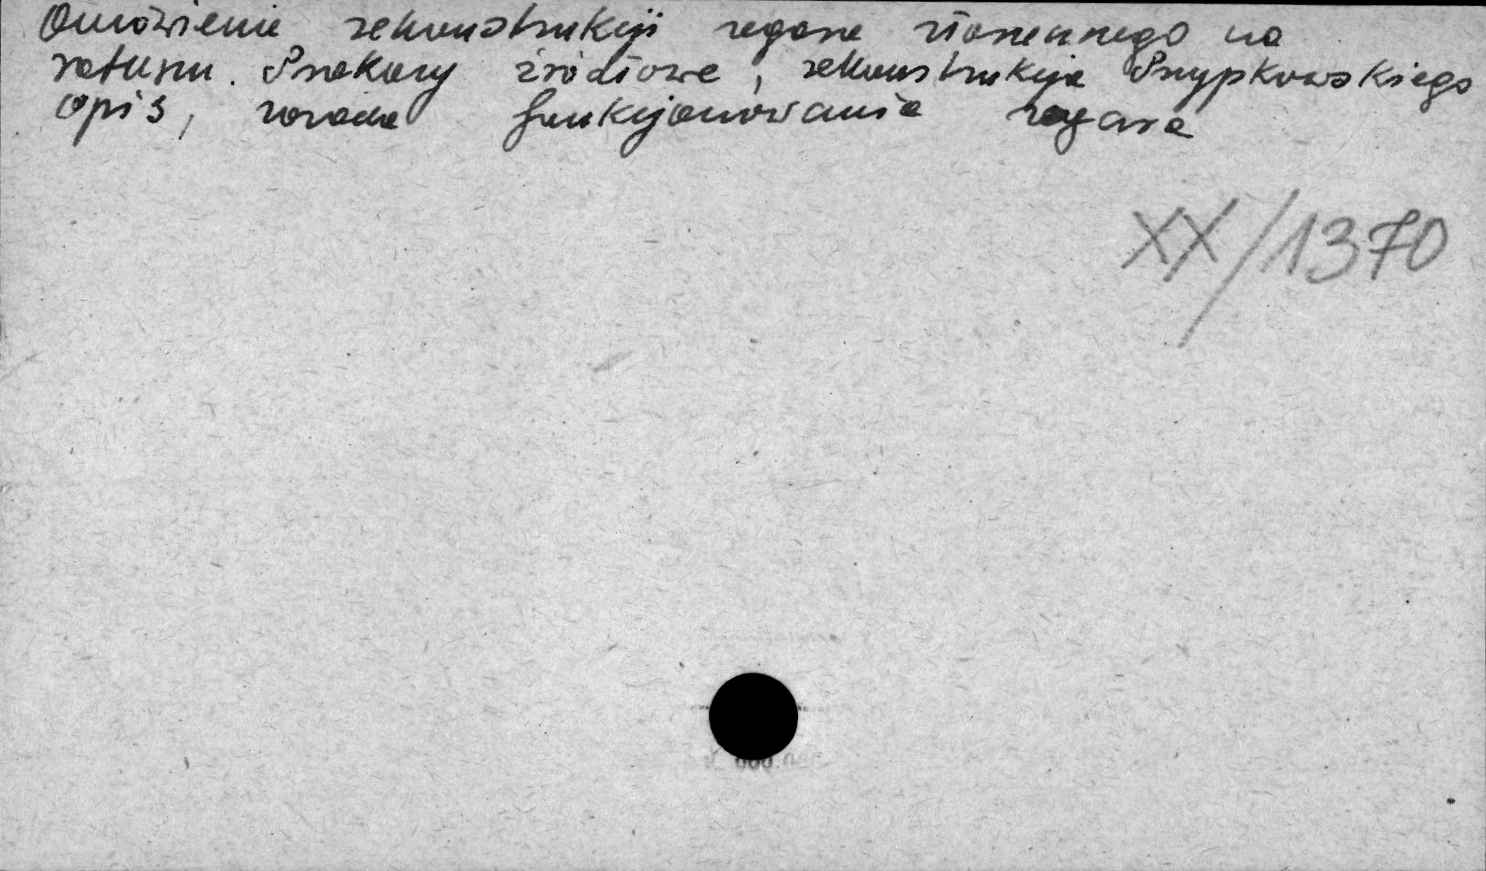 Omówienie rekonstrukcji zegara słonecznego na
ratuszu. Przekazy źródłowe, rekonstrukcja Przypkowskiego
opis, zasada funkcjonowania zegara
XX/1370